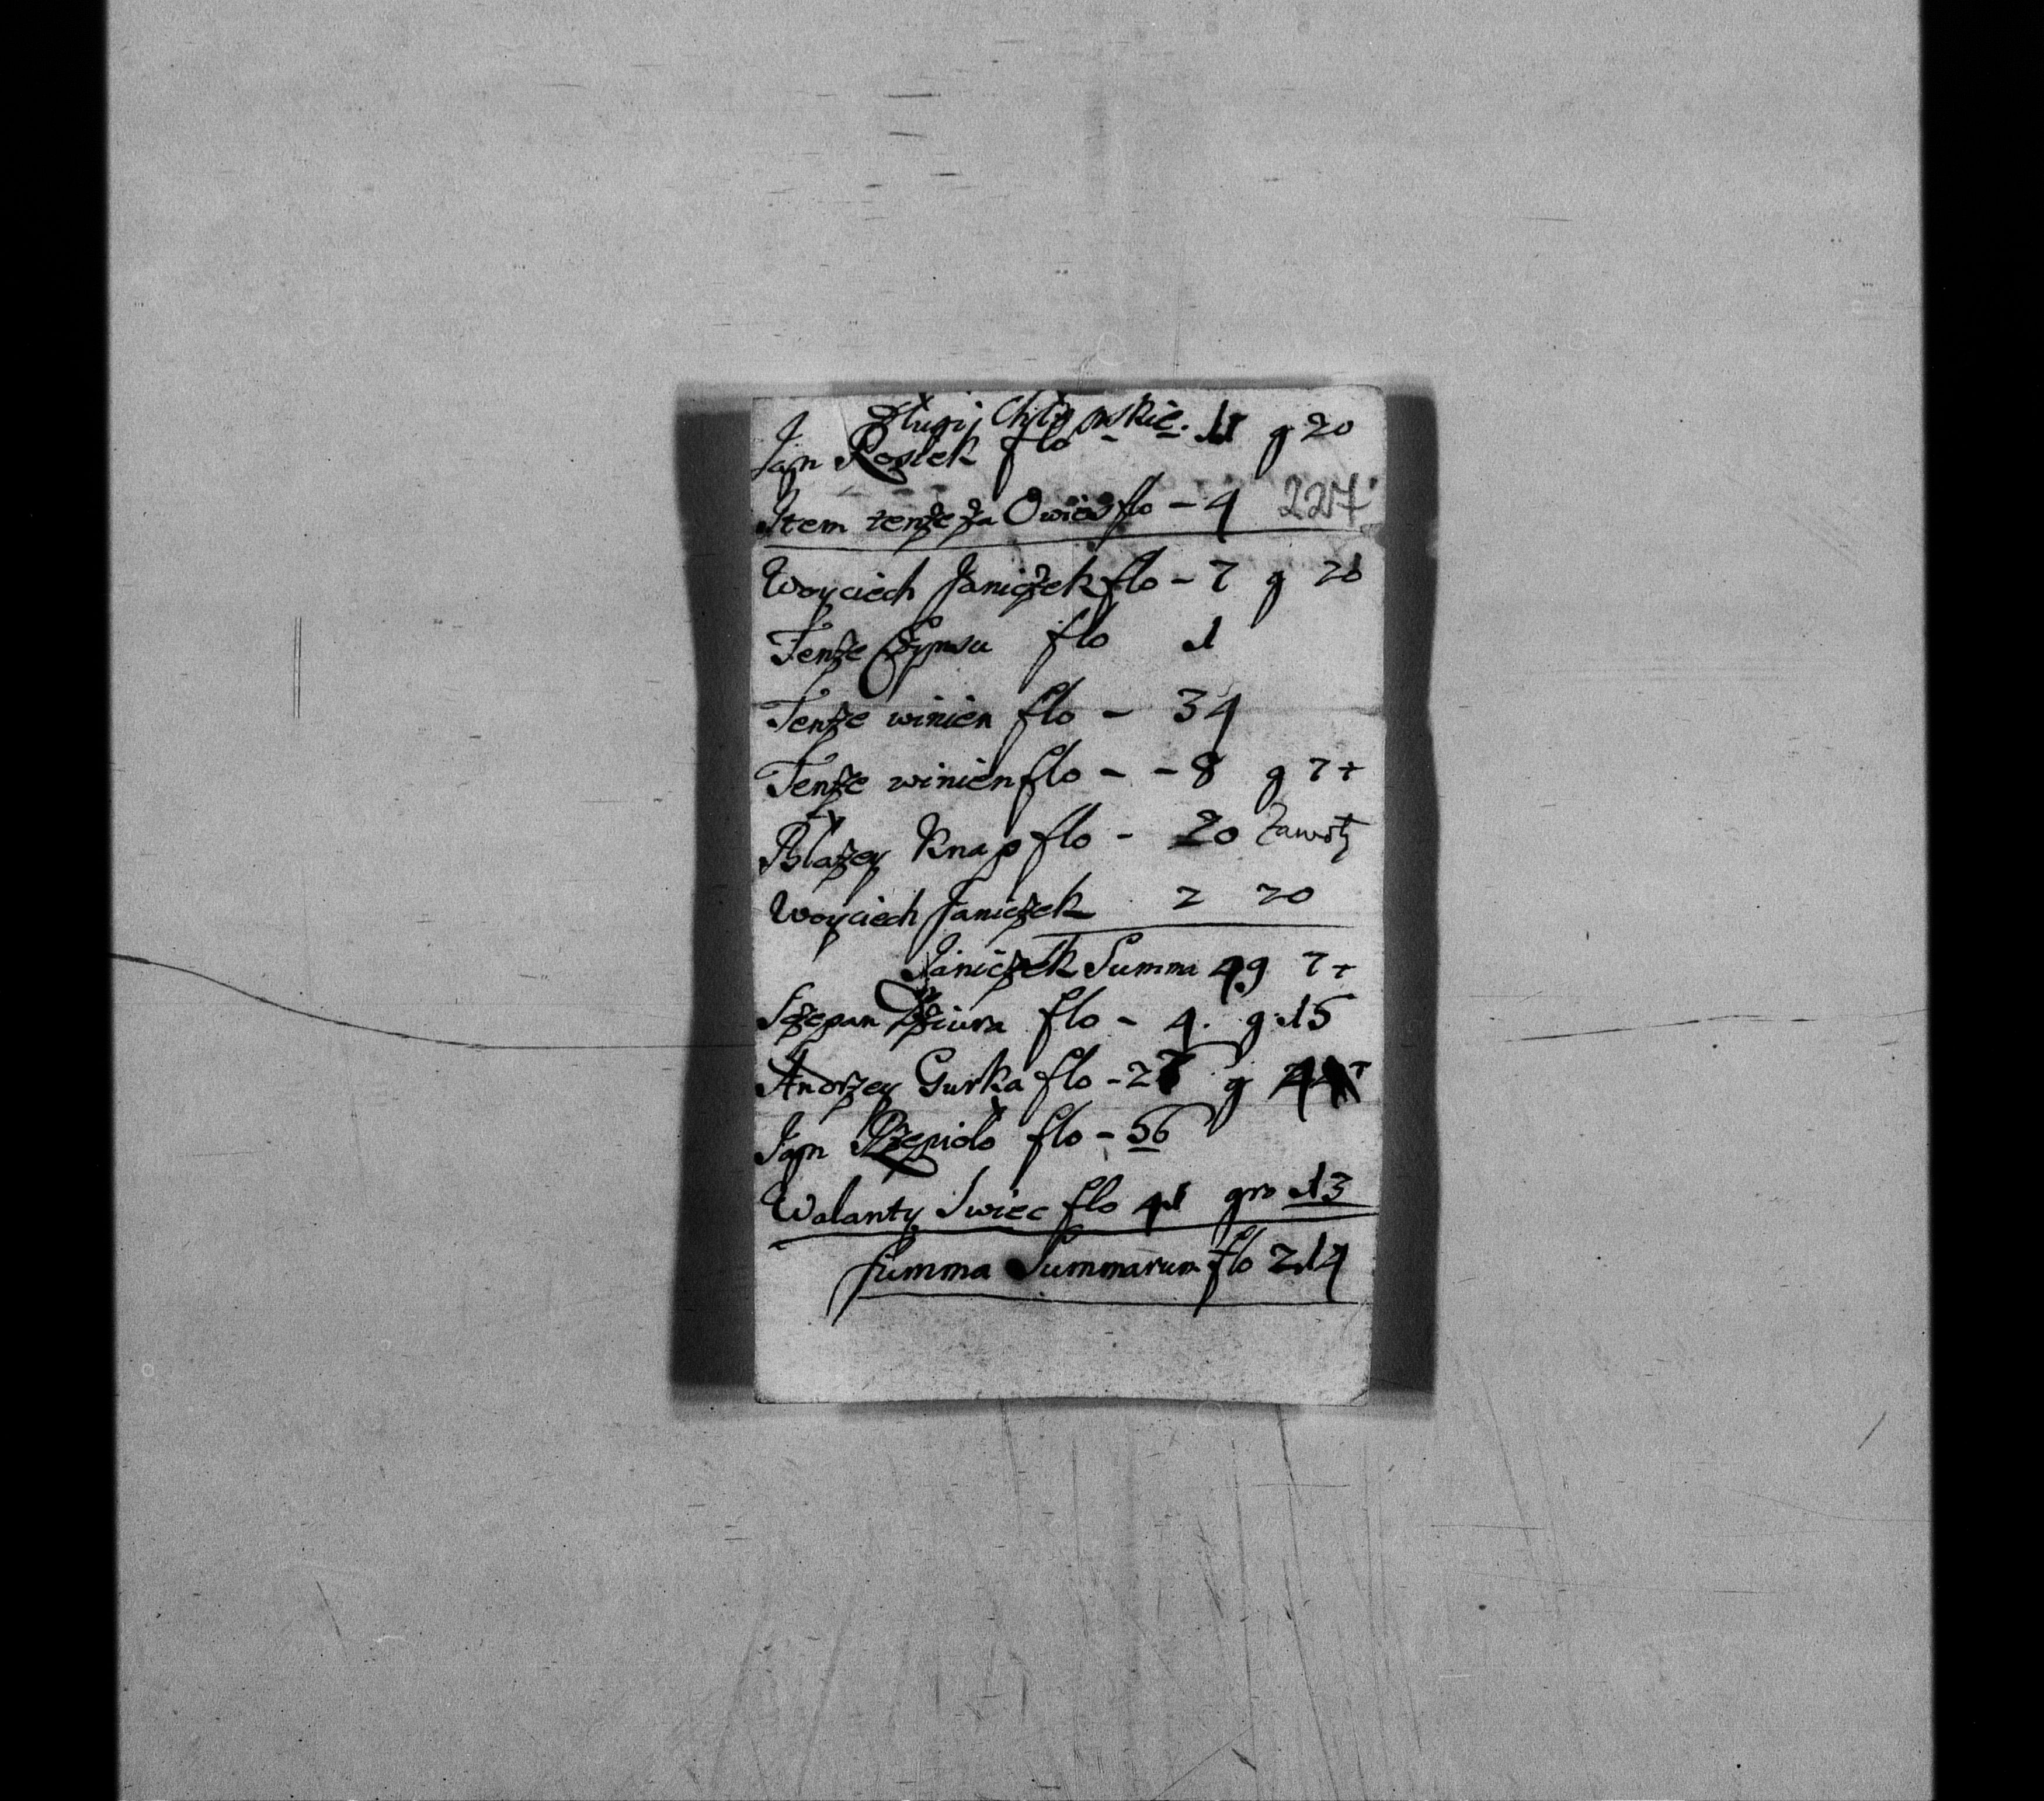 Długi Chłopskie.
Jan Rosiek flo - 11 g 20
Item tenże za Owies flo - 4 227
Woyciech Janiczek flo - 7 g 20
Tenże Czynszu flo 1
Tenże winien flo - 34
Tenże winien flo - - 8 g 7+
Błażey Knap flo - 20
Woyciech Janiczek 2 20
Janiczek Summa 49 7+
Szczepan Dziura flo - 4. g 15
Andrzey Gurka flo - 27 g
Jan Rzepioło flo - 56
Walanty Swiec flo 41 gro 13
Summa Summarum flo 214